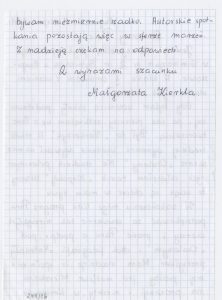 bywam niezmiernie rzadko. Autorskie spot-
kania pozostają więc w sferze marzeń.
Z nadzieją czekam na odpowiedź
Z wyrazami szacunku
Małgorzata